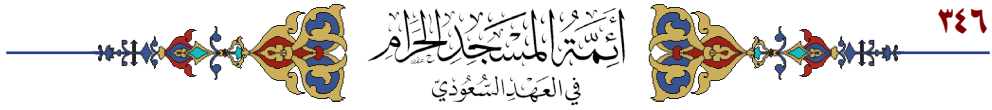 ٣٤٦
أَئِمَّةُ المَسْجِدِ الحَرَامِ
فِي العَهْدِ السُّعُودِيِّ